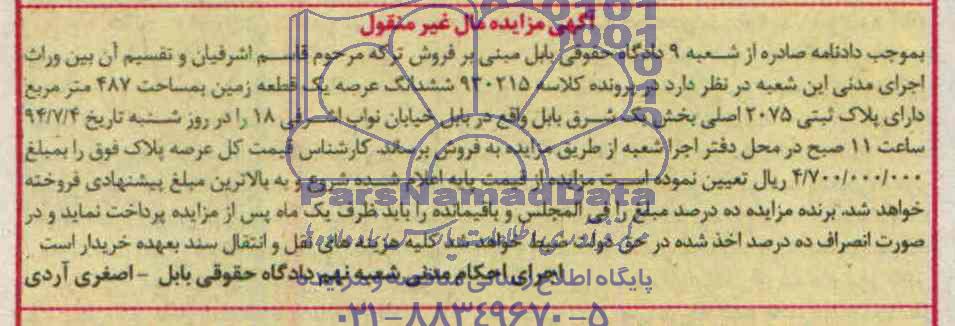 آگهی مزایده مال غیر منقول
بموجب دادنامه صادره از شعبه ۹ دادگاه حقوقی بابل مبنی بر فروش ترکه مرحوم قاسم اشرفیان و تقسیم آن بین وراث
اجرای مدنی این شعبه در نظر دارد در پرونده کلاسه ۹۳۰۲۱۵ ششدانگ عرصه یک قطعه زمین بمساحت ۴۸۷ متر مربع
دارای پلاک ثبتی ۲۰۷۵ اصلی بخش یک شرق بابل واقع در بابل خیابان نواب اشرفی ۱۸ را در روز شنبه تاریخ ۹۴/۷/۴
ساعت ۱۱ صبح در محل دفتر اجرا شعبه از طریق مزایده به فروش برساند. کارشناس قیمت کل عرصه پلاک فوق را بمبلغ
۴/۷۰۰/۰۰۰/۰۰۰ ریال تعیین نموده است مزایده از قیمت پایه اعلام شده شروع و به بالاترین مبلغ پیشنهادی فروخته
خواهد شد. برنده مزایده ده درصد مبلغ را فی المجلس و باقیمانده را باید ظرف یک ماه پس از مزایده پرداخت نماید و در
صورت انصراف ده درصد اخذ شده در حق دولت ضبط خواهد شد کلیه هزینه های نقل و انتقال سند بعهده خریدار است
اجرای احکام مدنی شعبه نهم دادگاه حقوقی بابل - اصغری آردی
ParsNamadData
پایگاه اطلاع رسانی مناقصه و مزایده
۰۲۱-۸۸۳۴۹۶۷۰-۵